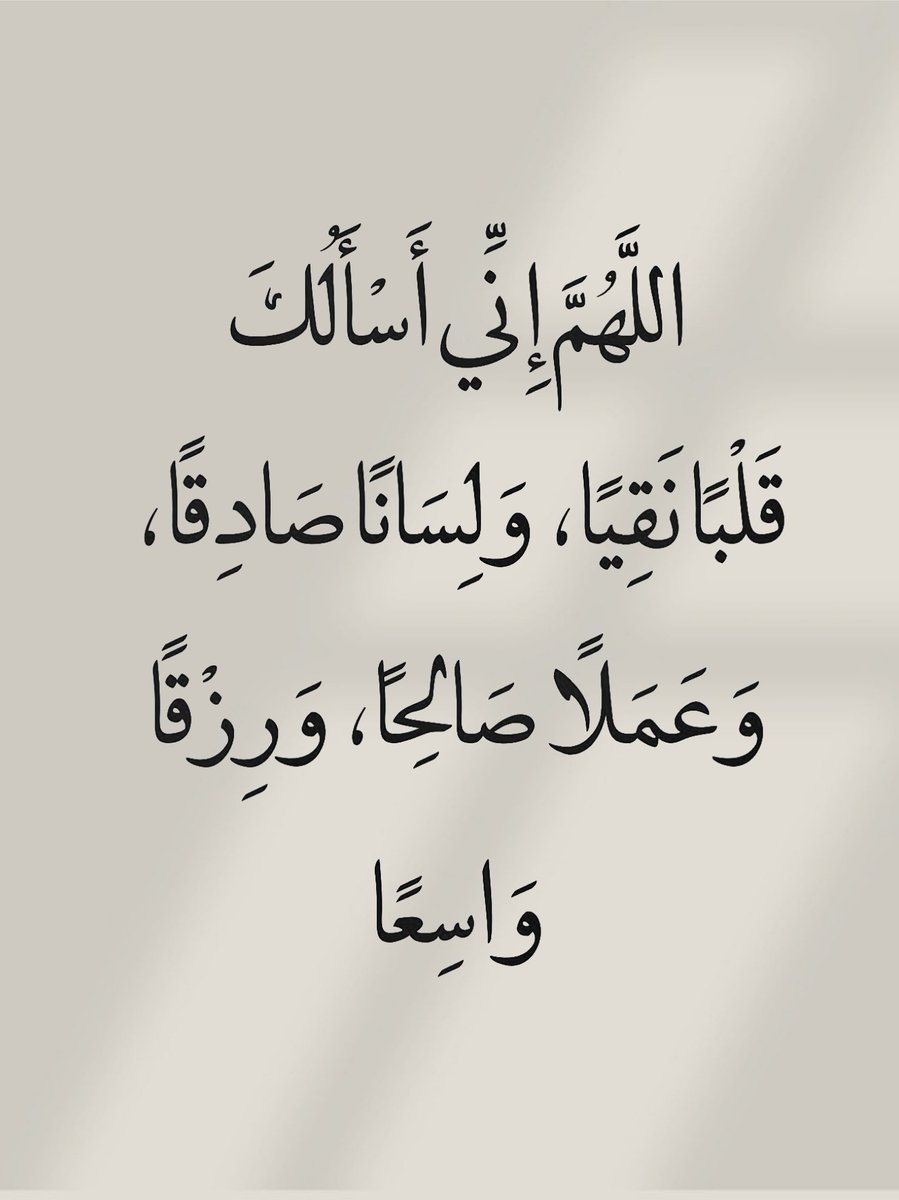 اللَّهُمَّ إِنِّي أَسْأَلُكَ
قَلْبًا نَقِيًا، وَلِسَانًا صَادِقًا،
وَعَمَلًا صَالِحًا، وَرِزْقًا
وَاسِعًا